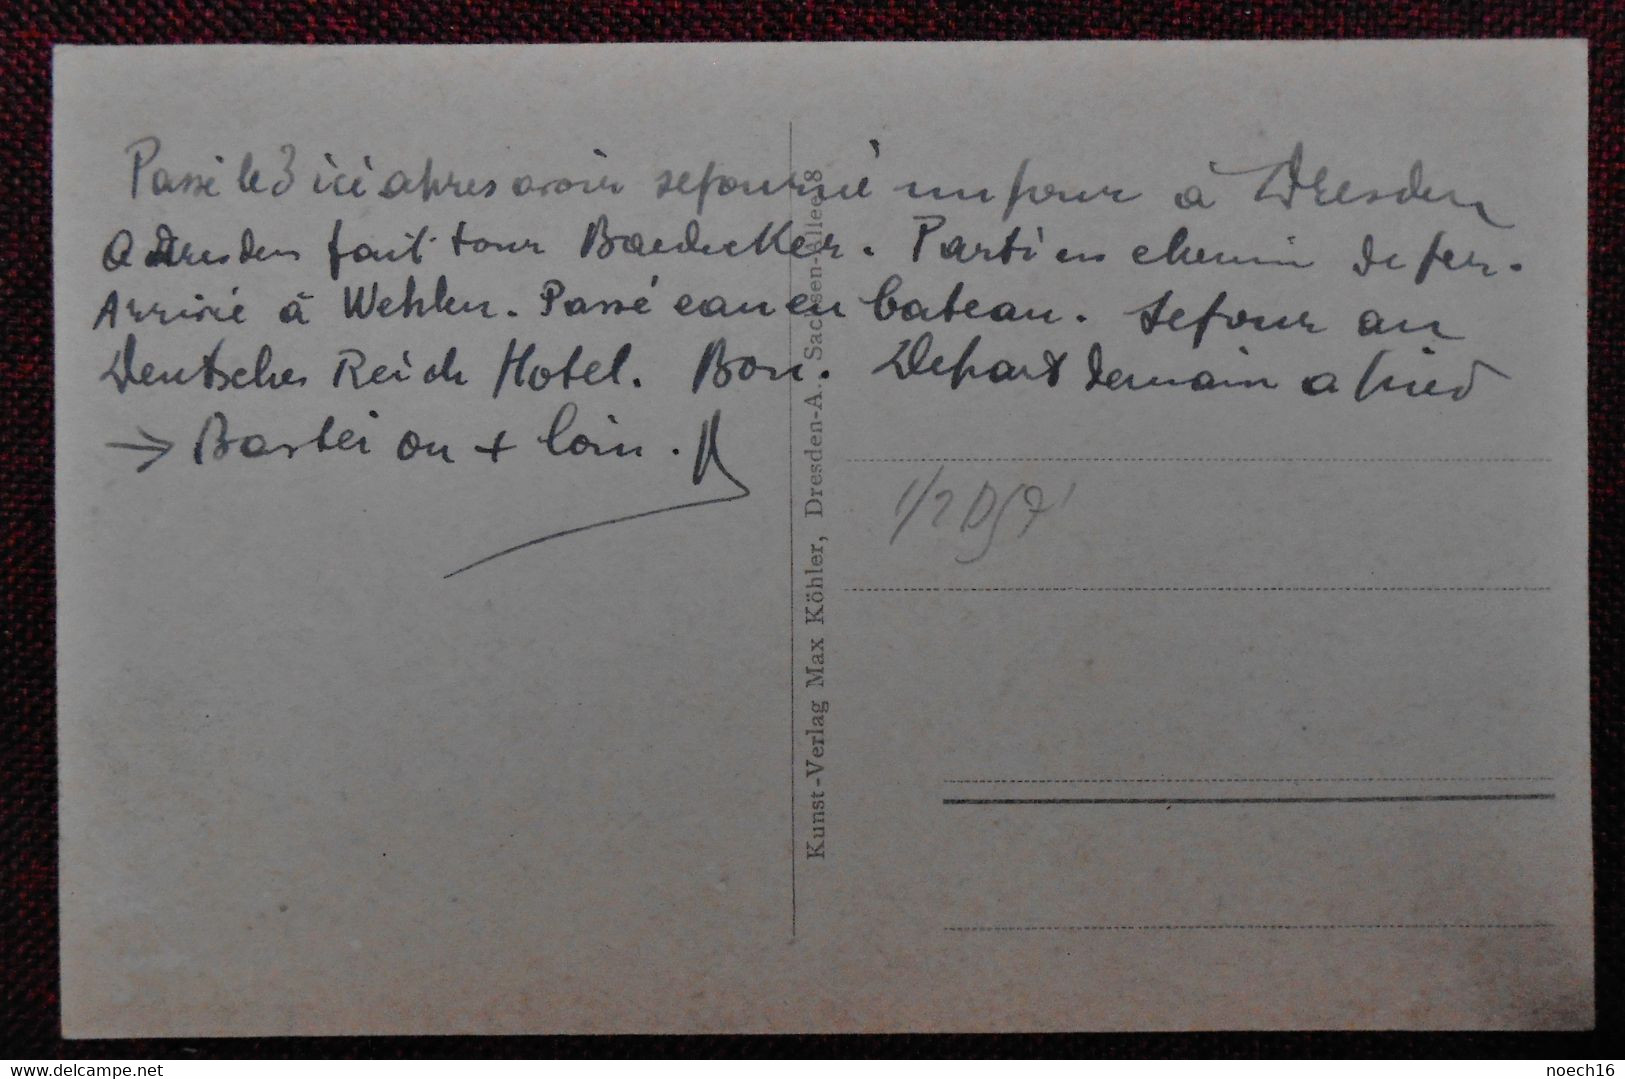 Passé le 3 ici apres avoir sejourné un jour à Dresden
A Dresden fait tour Baedecker. Parti en chemin de fer.
Arrivé à Wehlen. Passé eau en bateau. Sejour au
Deutsches Reich Hotel. Bon. Depart demain a pied
→ Bastei ou + loin.
Kunst-Verlag Max Köhler, Dresden-A. Sachsen-Allee 8
delcampe.net
noech16